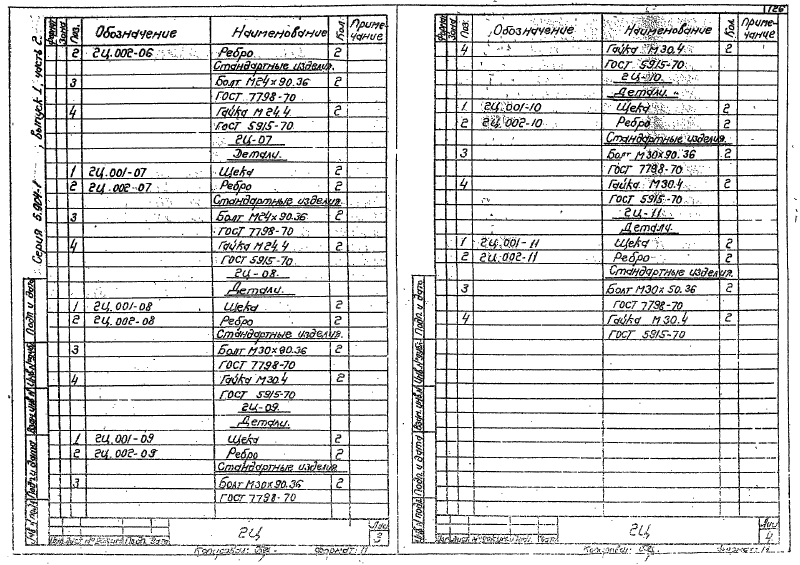 Серия 5.904-1, Выпуск 1, часть 2.
Форм. Зона Поз. Обозначение Наименование Кол Примечание
2 2Ц.002-06 Ребро 2
Стандартные изделия.
3 Болт М24×90.36 2
ГОСТ 7798-70
4 Гайка М24.4 2
ГОСТ 5915-70
2Ц-07
Детали.
1 2Ц.001-07 Щека 2
2 2Ц.002-07 Ребро 2
Стандартные изделия.
3 Болт М24×90.36 2
ГОСТ 7798-70
4 Гайка М24.4 2
ГОСТ 5915-70
2Ц-08.
Детали.
1 2Ц.001-08 Щека 2
2 2Ц.002-08 Ребро 2
Стандартные изделия.
3 Болт М30×90.36 2
ГОСТ 7798-70
4 Гайка М30.4 2
ГОСТ 5915-70
2Ц-09.
Детали.
1 2Ц.001-09 Щека 2
2 2Ц.002-09 Ребро 2
Стандартные изделия
3 Болт М30×90.36 2
ГОСТ 7798-70
2Ц
Лист
3
Копировал:
Формат: 11
126
Форм. Зона Поз. Обозначение Наименование Кол Примечание
4 Гайка М30.4 2
ГОСТ 5915-70
2Ц-10.
Детали.
1 2Ц.001-10 Щека 2
2 2Ц.002-10 Ребро 2
Стандартные изделия
3 Болт М30×90.36 2
ГОСТ 7798-70
4 Гайка М30.4 2
ГОСТ 5915-70
2Ц-11.
Детали.
1 2Ц.001-11 Щека 2
2 2Ц.002-11 Ребро 2
Стандартные изделия.
3 Болт М30×50.36 2
ГОСТ 7798-70
4 Гайка М30.4 2
ГОСТ 5915-70
2Ц
Лист
4
Копировал: